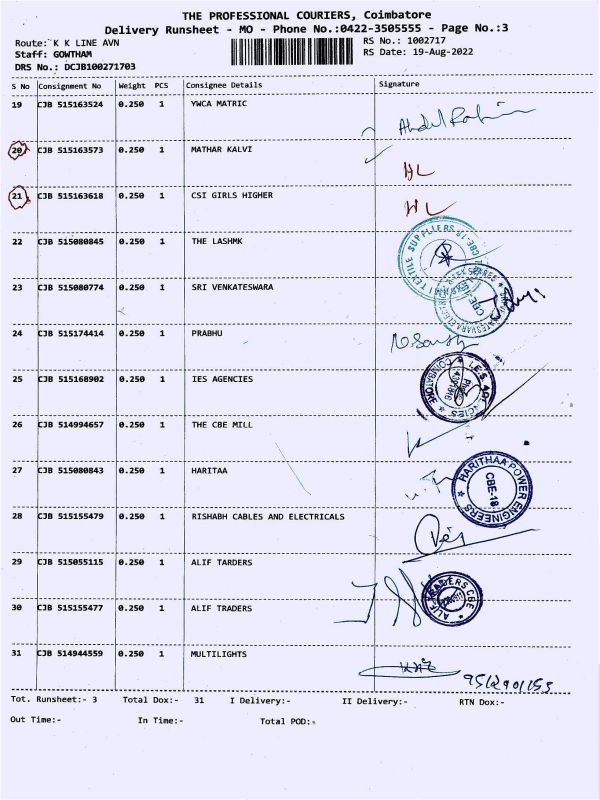 THE PROFESSIONAL COURIERS, Coimbatore
Delivery Runsheet - MO - Phone No.:0422-3505555 - Page No.:3
Route: K K LINE AVN RS No.: 1002717
Staff: GOWTHAM RS Date: 19-Aug-2022
DRS No.: DCJB100271703
S No Consignment No Weight PCS Consignee Details Signature
19 CJB 515163524 0.250 1 YWCA MATRIC
20 CJB 515163573 0.250 1 MATHAR KALVI
21 CJB 515163618 0.250 1 CSI GIRLS HIGHER
22 CJB 515080845 0.250 1 THE LASHMK
23 CJB 515080774 0.250 1 SRI VENKATESWARA
24 CJB 515174414 0.250 1 PRABHU
25 CJB 515168902 0.250 1 IES AGENCIES
26 CJB 514994657 0.250 1 THE CBE MILL
27 CJB 515080843 0.250 1 HARITAA HARITHAA POWER ENGINEERS CBE-18
28 CJB 515155479 0.250 1 RISHABH CABLES AND ELECTRICALS
29 CJB 515055115 0.250 1 ALIF TARDERS
30 CJB 515155477 0.250 1 ALIF TRADERS ALIF TRADERS CBE
31 CJB 514944559 0.250 1 MULTILIGHTS
Tot. Runsheet:- 3 Total Dox:- 31 I Delivery:- II Delivery:- RTN Dox:-
Out Time:- In Time:- Total POD:-